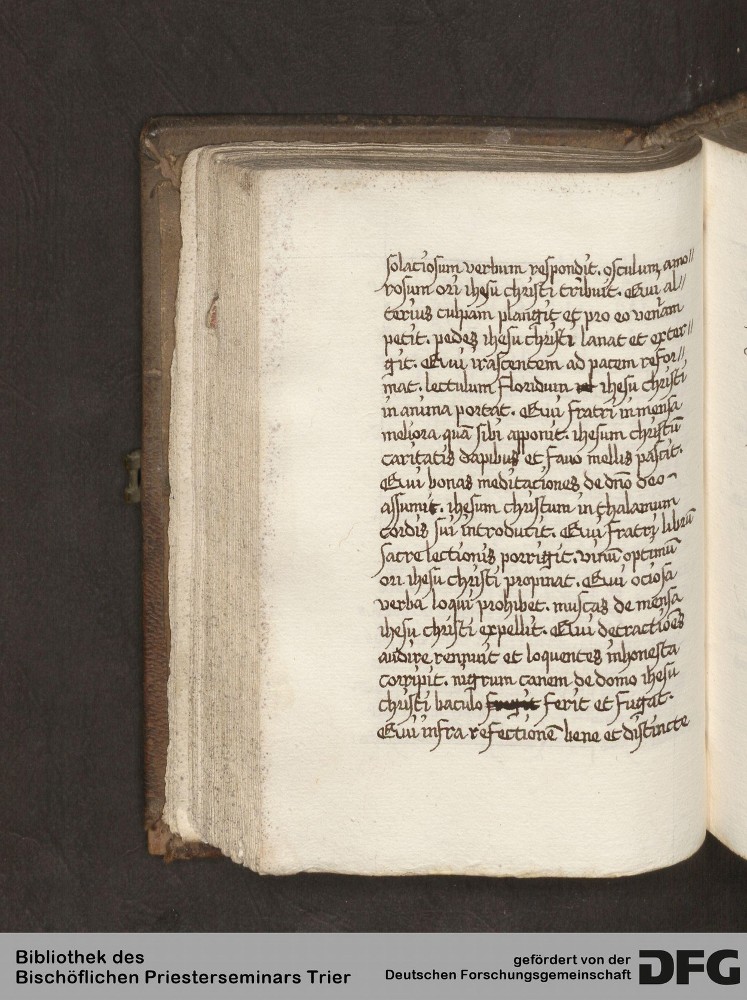 solaciosum verbum respondit. osculum amo//
rosum ori ihesu christi tribuit. Qui al//
terius culpam plangit et pro eo veniam
petit. pedes ihesu christi lauat et exter//
git. Qui irascentem ad pacem refor//
mat. lectulum floridum ihesu christi
in anima portat. Qui fratri in mensa
meliora quā sibi apponit. ihesum christū
caritatis dapibus et fauo mellis pascit.
Qui bonas meditaciones de dn̄o deo
assumit. ihesum christum in thalamum
cordis sui introducit. Qui fratri librū
sacre lectionis porrigit. vinū optimū
ori ihesu christi propinat. Qui ociosa
verba loqui prohibet. muscas de mensa
ihesu christi expellit. Qui detractiōes
audire rennuit et loquentes inhonesta
corripit. nigrum canem de domo ihesu
christi baculo ferit et fugat.
Qui infra refectionē bene et distincte
Bibliothek des
Bischöflichen Priesterseminars Trier
gefördert von der
Deutschen Forschungsgemeinschaft
DFG